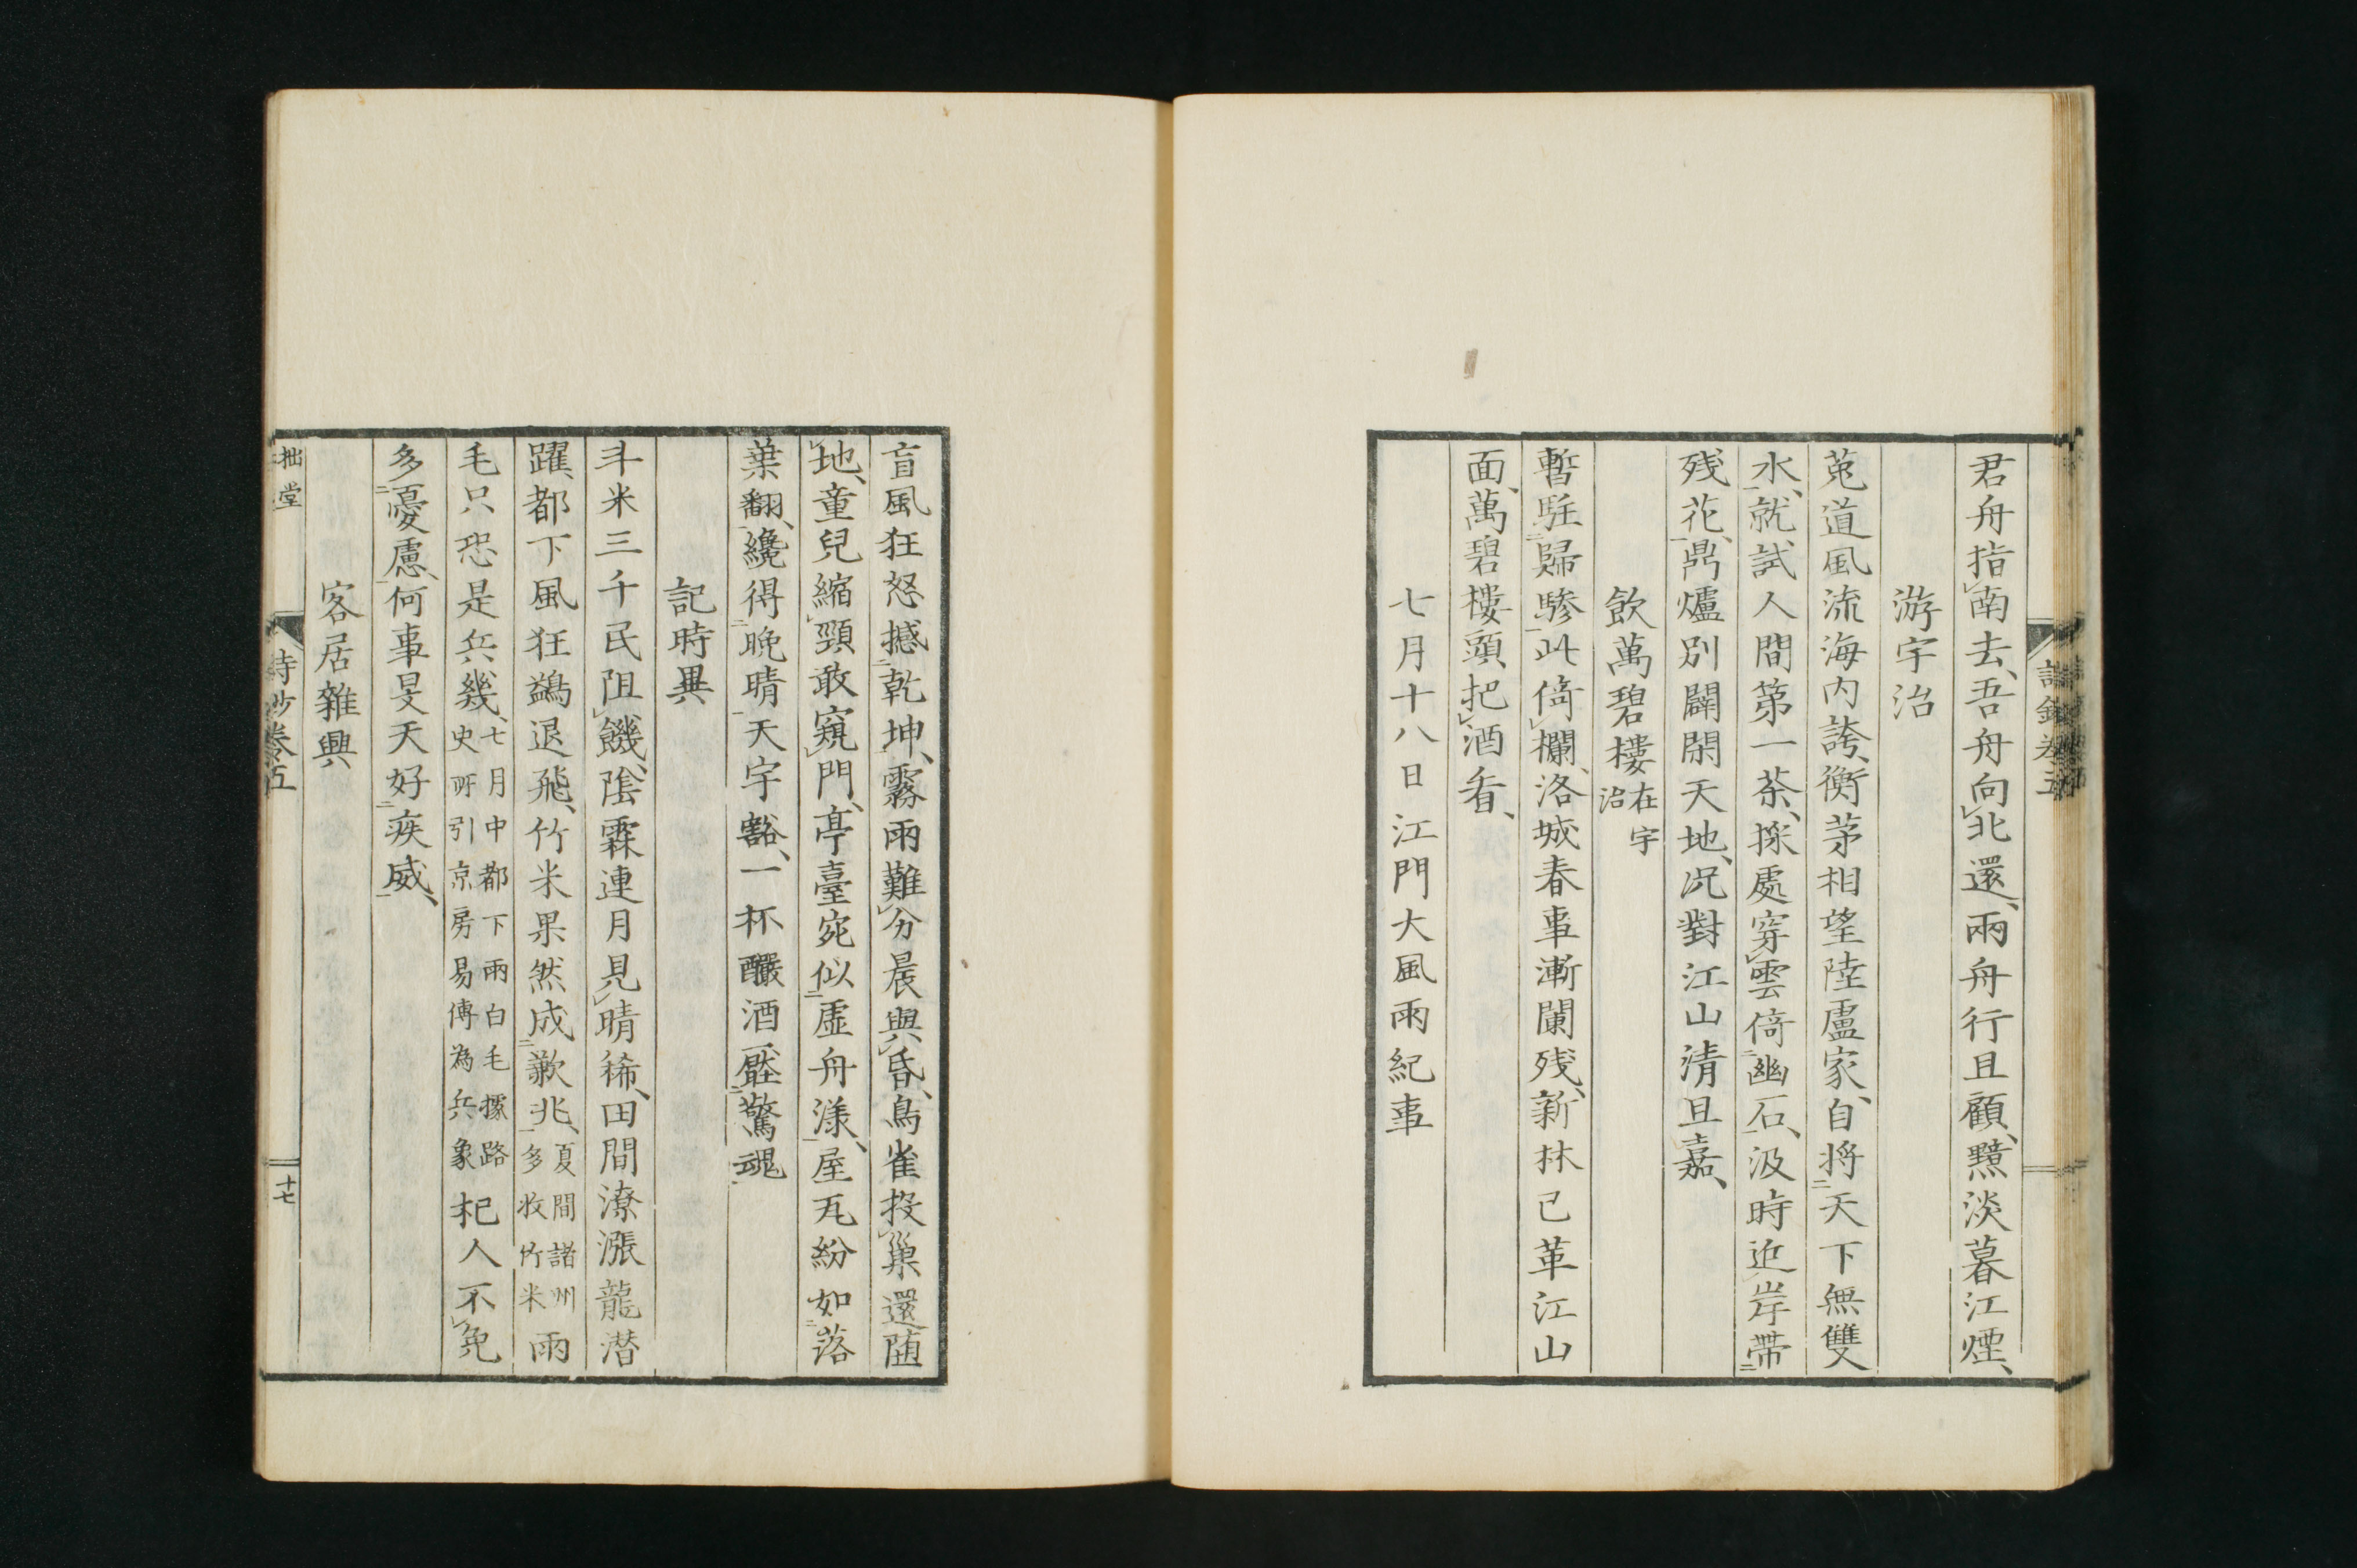 君舟指南去、吾舟向北還、兩舟行且顧、黯淡暮江煙、
游宇治
菟道風流海内誇、衡茅相望陸盧家、自将二天下無雙
水一、就試人間第一茶、採處穿雲倚二幽石一、汲時近岸帶二
残花一、鼎爐別闢閑天地、况對江山清且嘉、
飲萬碧樓在宇治
暫駐二歸驂一此倚欄、洛城春事漸闌残、新林已革江山
面、萬碧樓頭把酒看、
七月十八日江門大風雨紀事
盲風狂怒撼二乾坤一、霧雨難分晨與昏、鳥雀投巢還随
地、童兒縮頸敢窺門、亭臺宛似二虛舟漾一、屋瓦紛如二落
葉翻一、纔得二晩晴一天宇豁、一杯釅酒一壓二驚魂
記時異
斗米三千民阻饑、陰霖連月見晴稀、田間潦漲龍潜
躍、都下風狂鷁退飛、竹米果然成二歉兆一、夏間諸州多收竹米雨
毛只恐是兵幾、七月中都下雨白毛據路史所引京房易傳為兵象杞人不免
多二憂慮一、何事旻天好二疾威一、
客居雜興
拙堂
詩鈔卷五
十七